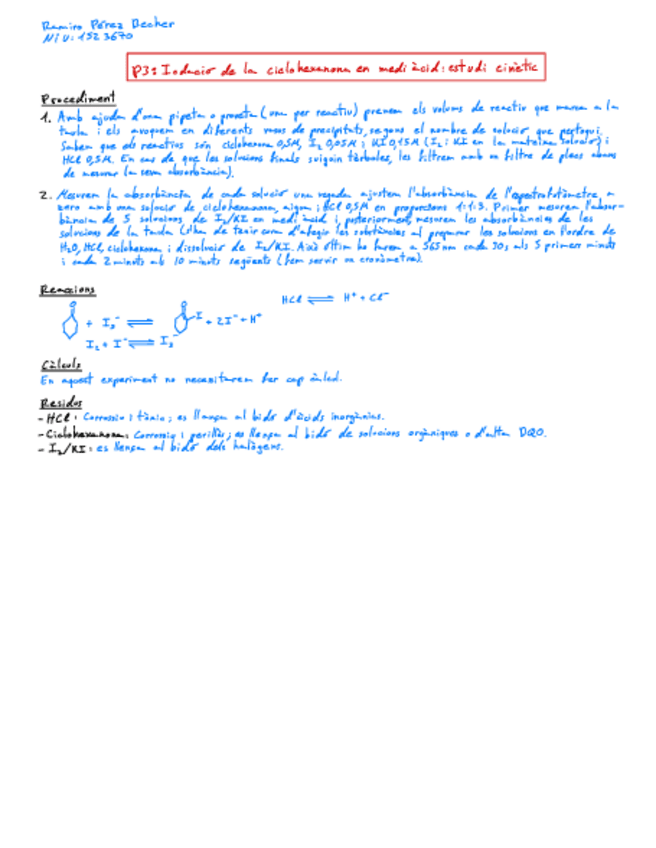 Ramiro Pérez Becher
NIU: 1523670
P3: Iodació de la ciclohexanona en medi àcid: estudi cinètic
Procediment
1. Amb ajuda d'una pipeta o proveta (una per reactiu) prenem els volums de reactiu que marca a la
taula i els aboquem en diferents vasos de precipitats, segons el nombre de solució que pertoqui.
Sabem que els reactius són ciclohexanona 0,5M, I2 0,05M i KI 0,15M (I2 i KI en la mateixa solució) i
HCl 0,5M. En cas de que les solucions finals siguin tèrboles, les filtrem amb un filtre de plecs abans
de mesurar la seva absorbància).
2. Mesurem la absorbància de cada solució una vegada ajustem l'absorbància de l'espectrofotòmetre a
zero amb una solució de ciclohexanona, aigua i HCl 0,5M en proporcions 1:1:3. Primer mesurem l'absor-
bància de 5 solucions de I2/KI en medi àcid i, posteriorment, mesurem les absorbàncies de les
solucions de la taula (s'han de tenir com d'afegir les substàncies al preparar les solucions en l'ordre de
H2O, HCl, ciclohexanona i dissolució de I2/KI. Això últim ho farem a 565nm cada 30s els 5 primers minuts
i cada 2 minuts als 10 minuts següents (fem servir un cronòmetre).
Reaccions
HCl ⇌ H+ + Cl-
O + I3- ⇌ O I + 2I- + H+
I2 + I- ⇌ I3-
Càlculs
En aquest experiment no necessitarem fer cap càlcul.
Residus
- HCl: Corrossiu i tòxic; es llança al bidó d'àcids inorgànics.
- Ciclohexanona: Corrossiu i perillós; es llença al bidó de solucions orgàniques o d'alta DQO.
- I2/KI: es llença al bidó dels halògens.